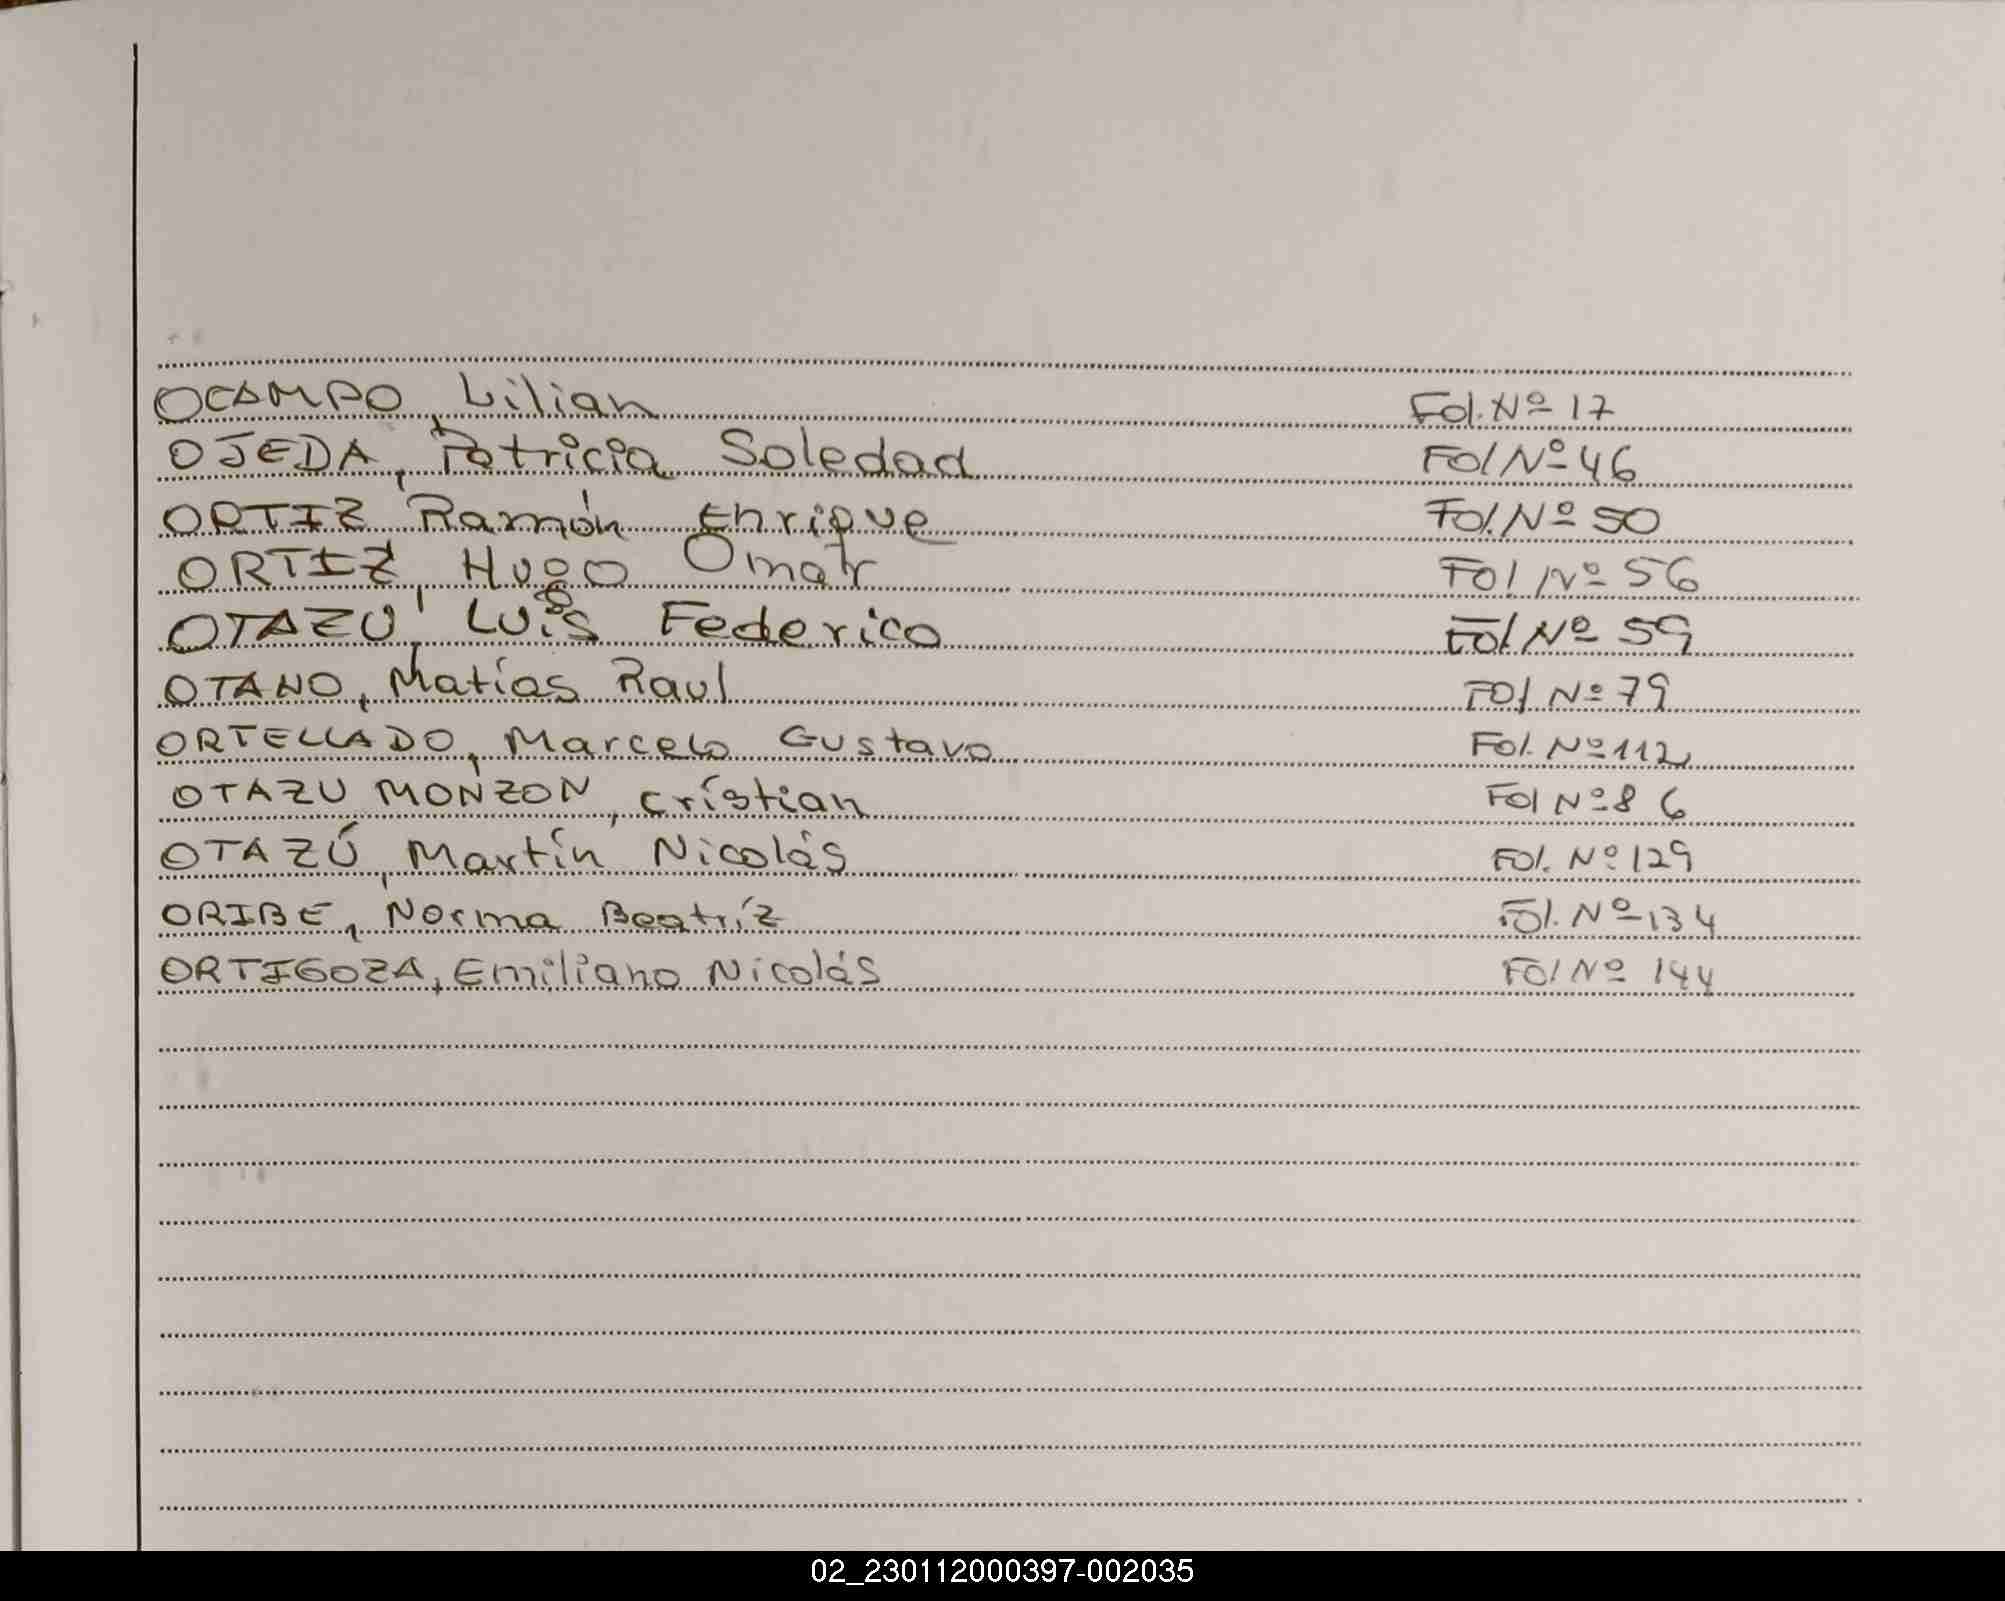 OCAMPO, Lilian Fol. Nº 17
OJEDA, Patricia Soledad Fol Nº 46
ORTIZ Ramón Enrique Fol. Nº 50
ORTIZ, Hugo Omar Fol Nº 56
OTAZU, Luis Federico Fol Nº 59
OTANO, Matías Raul Fol Nº 79
ORTELLADO, Marcelo Gustavo Fol. Nº 112
OTAZU MONZON, Crístian Fol Nº 86
OTAZÚ, Martín Nicolás Fol. Nº 129
ORIBE, Norma Beatríz Fol. Nº 134
ORTIGOZA, Emiliano Nicolás Fol Nº 144
02_230112000397-002035